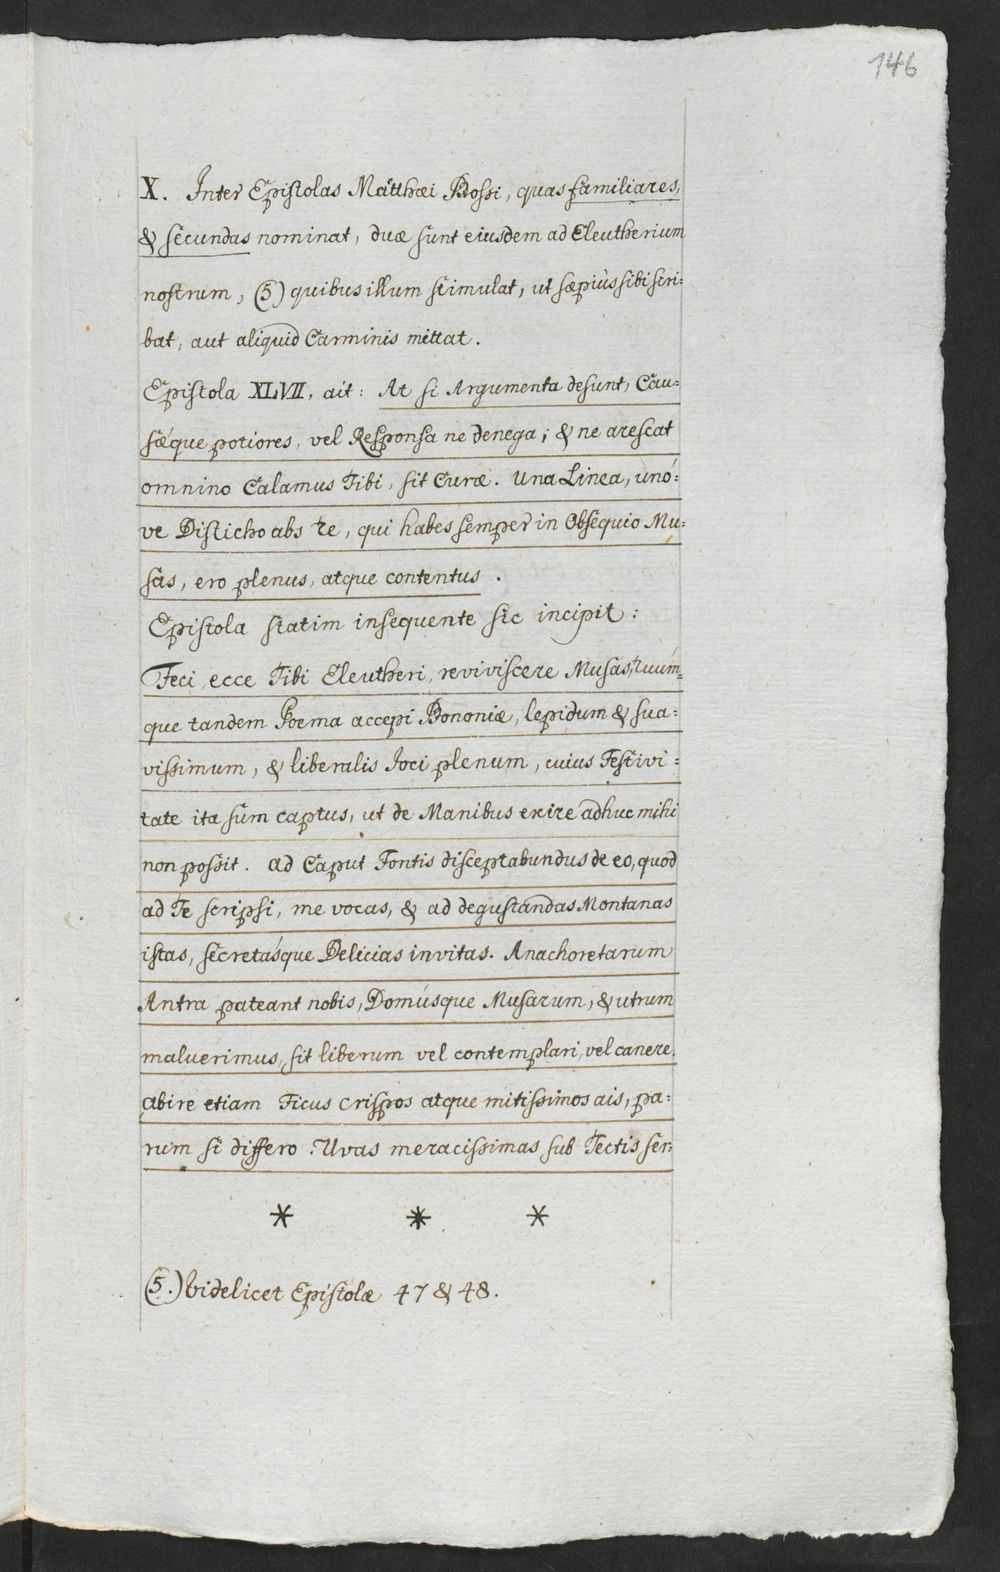 146
X. Inter Epistolas Matthæi Bossi, quas familiares,
& secundas nominat, duæ sunt eiusdem ad Eleutherium
nostrum, (5) quibus illum stimulat, ut sæpiùs sibi scri:
bat, aut aliquid Carminis mittat.
Epistola XLVII, ait: At si Argumenta desunt, Cau:
sǽque potiores, vel Responsa ne denega; & ne arescat
omnino Calamus Tibi, sit Curæ. Una Linea, unó:
ve Disticho abs te, qui habes semper in Obsequio Mu:
sas, ero plenus, atque contentus.
Epistola statim insequente sic incipit:
Feci, ecce Tibi Eleutheri, reviviscere Musas, tuúm=
que tandem Poema accepi Bononiæ, lepidum & sua:
vissimum, & liberalis Joci plenum, cuius Festivi:
tate ita sum captus, ut de Manibus exire adhuc mihi
non possit. ad Caput Fontis disceptabundus de eo, quod
ad Te scripsi, me vocas, & ad degustandas Montanas
istas, secretásque Delicias invitas. Anachoretarum
Antra pateant nobis, Domúsque Musarum, & utrum
maluerimus, sit liberum vel contemplari, vel canere.
abire etiam Ficus crispos atque mitissimos ais, pa:
rum si differo. Uvas meracissimas sub Tectis ser:
* * *
(5.) Videlicet Epistolæ 47 & 48.